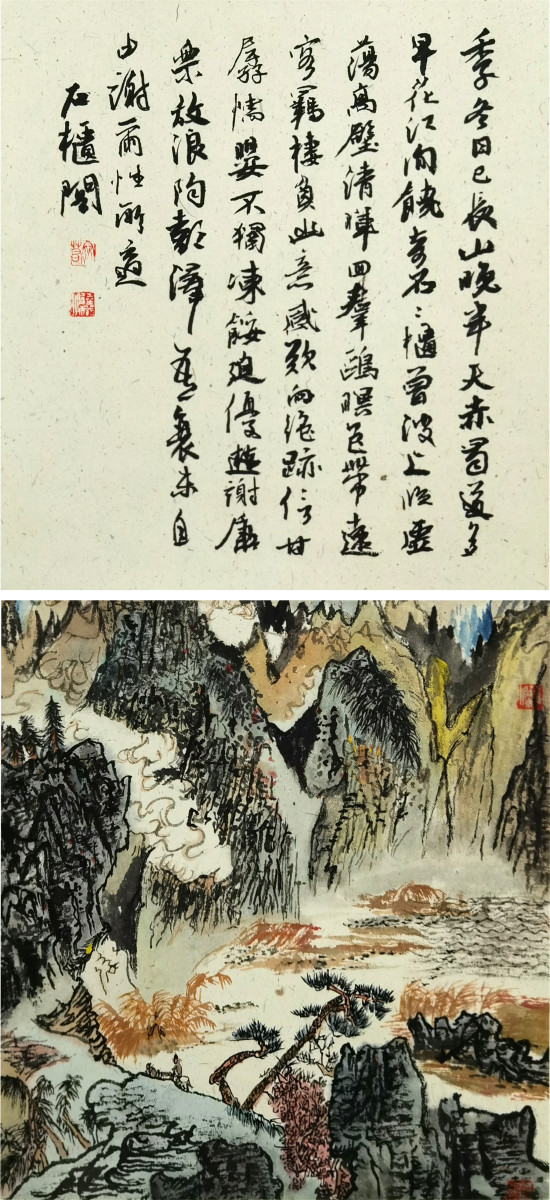 季冬日已長山晚半天赤蜀道多
早花江间饒奇石々櫃曾波上临虚
蕩高壁清暉回羣鷗暝色帶遠
客羈棲負幽意感歎向绝跡信甘
孱懦嬰不獨凍餒迫優遊謝康
樂放浪陶彭澤吾衰未自
由謝爾性所適
石櫃閣